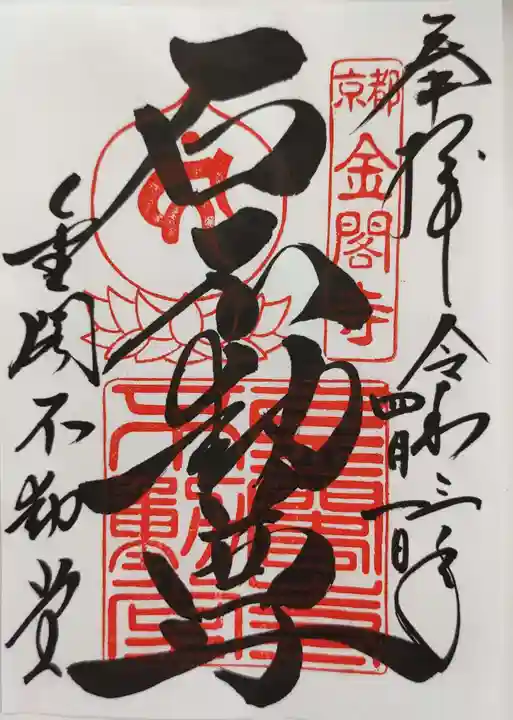 奉拝
令和三年
四月一日
京都
金閣寺
石不動尊
金閣不動堂